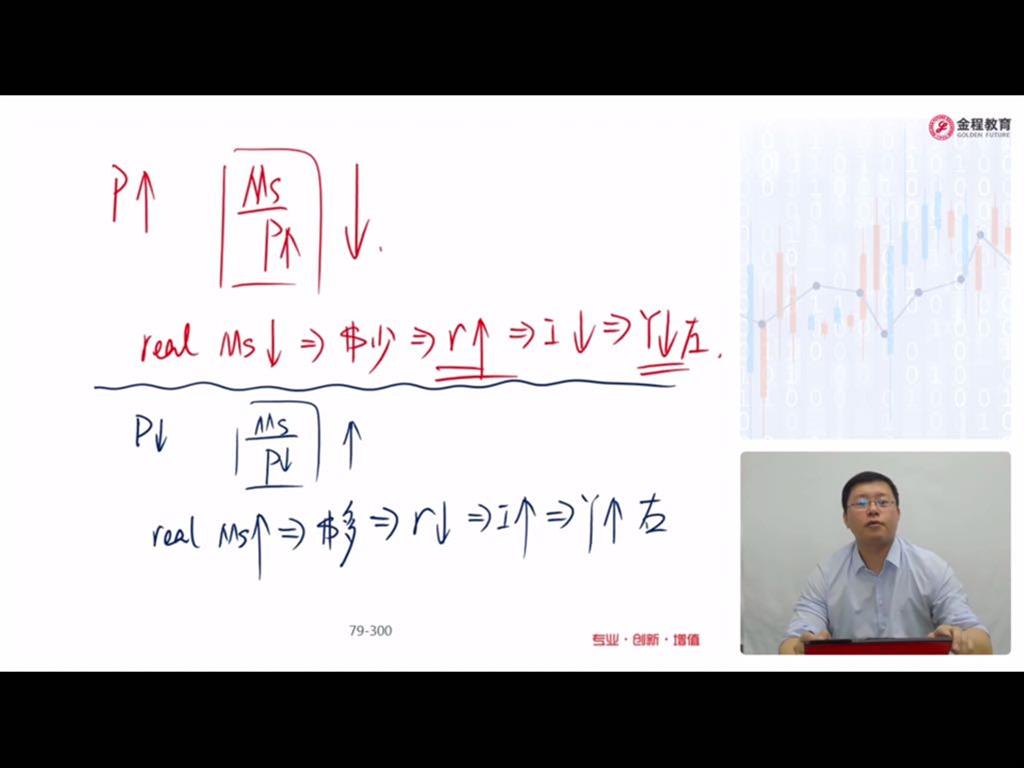 金程教育
GOLDEN FUTURE
P↑ Ms/P↑ ↓.
real Ms↓ ⇒ $少 ⇒ r↑ ⇒ I↓ ⇒ Y↓左.
P↓ Ms/P↓ ↑
real Ms↑ ⇒ $多 ⇒ r↓ ⇒ I↑ ⇒ Y↑ 右
79-300
专业·创新·增值